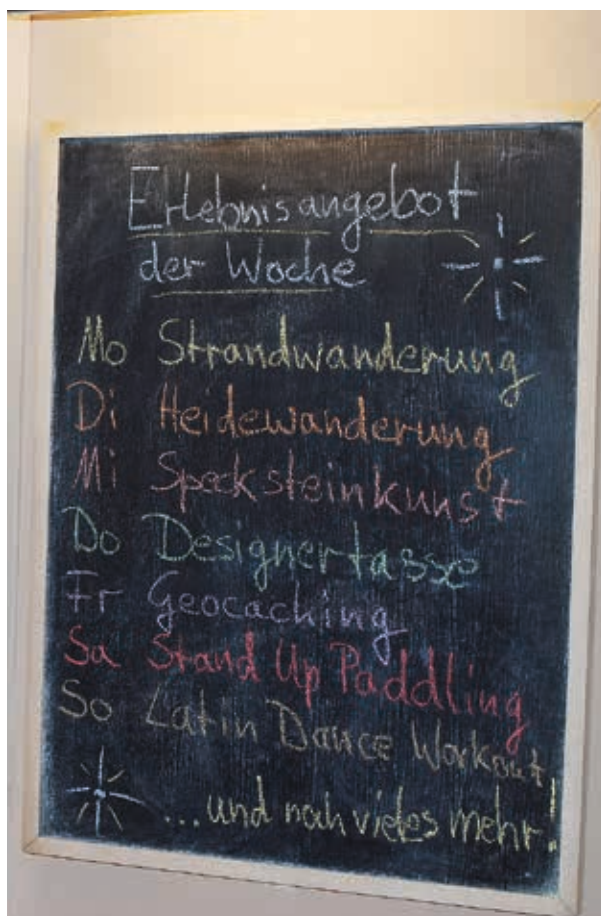 Erlebnisangebot
der Woche
Mo Strandwanderung
Di Heidewanderung
Mi Specksteinkunst
Do Designertasse
Fr Geocaching
Sa Stand Up Paddling
So Latin Dance Workout
...und noch vieles mehr!